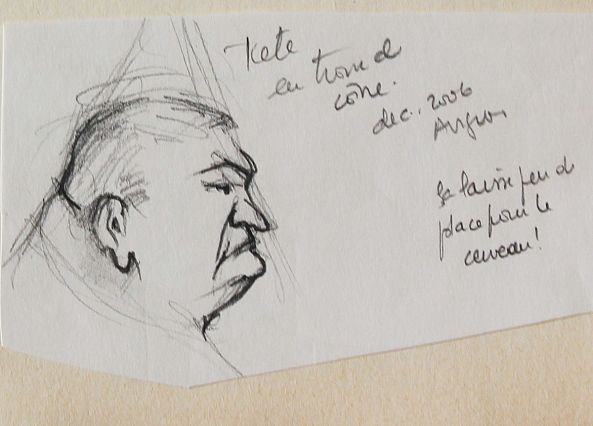 Tete
en tronc de
cône.
dec. 2006
ça laisse peu de
place pour le
cerveau!